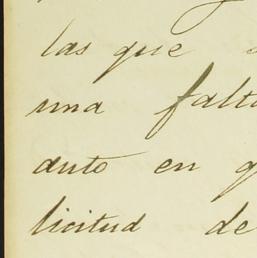 las que
una falt
auto en
licitud de